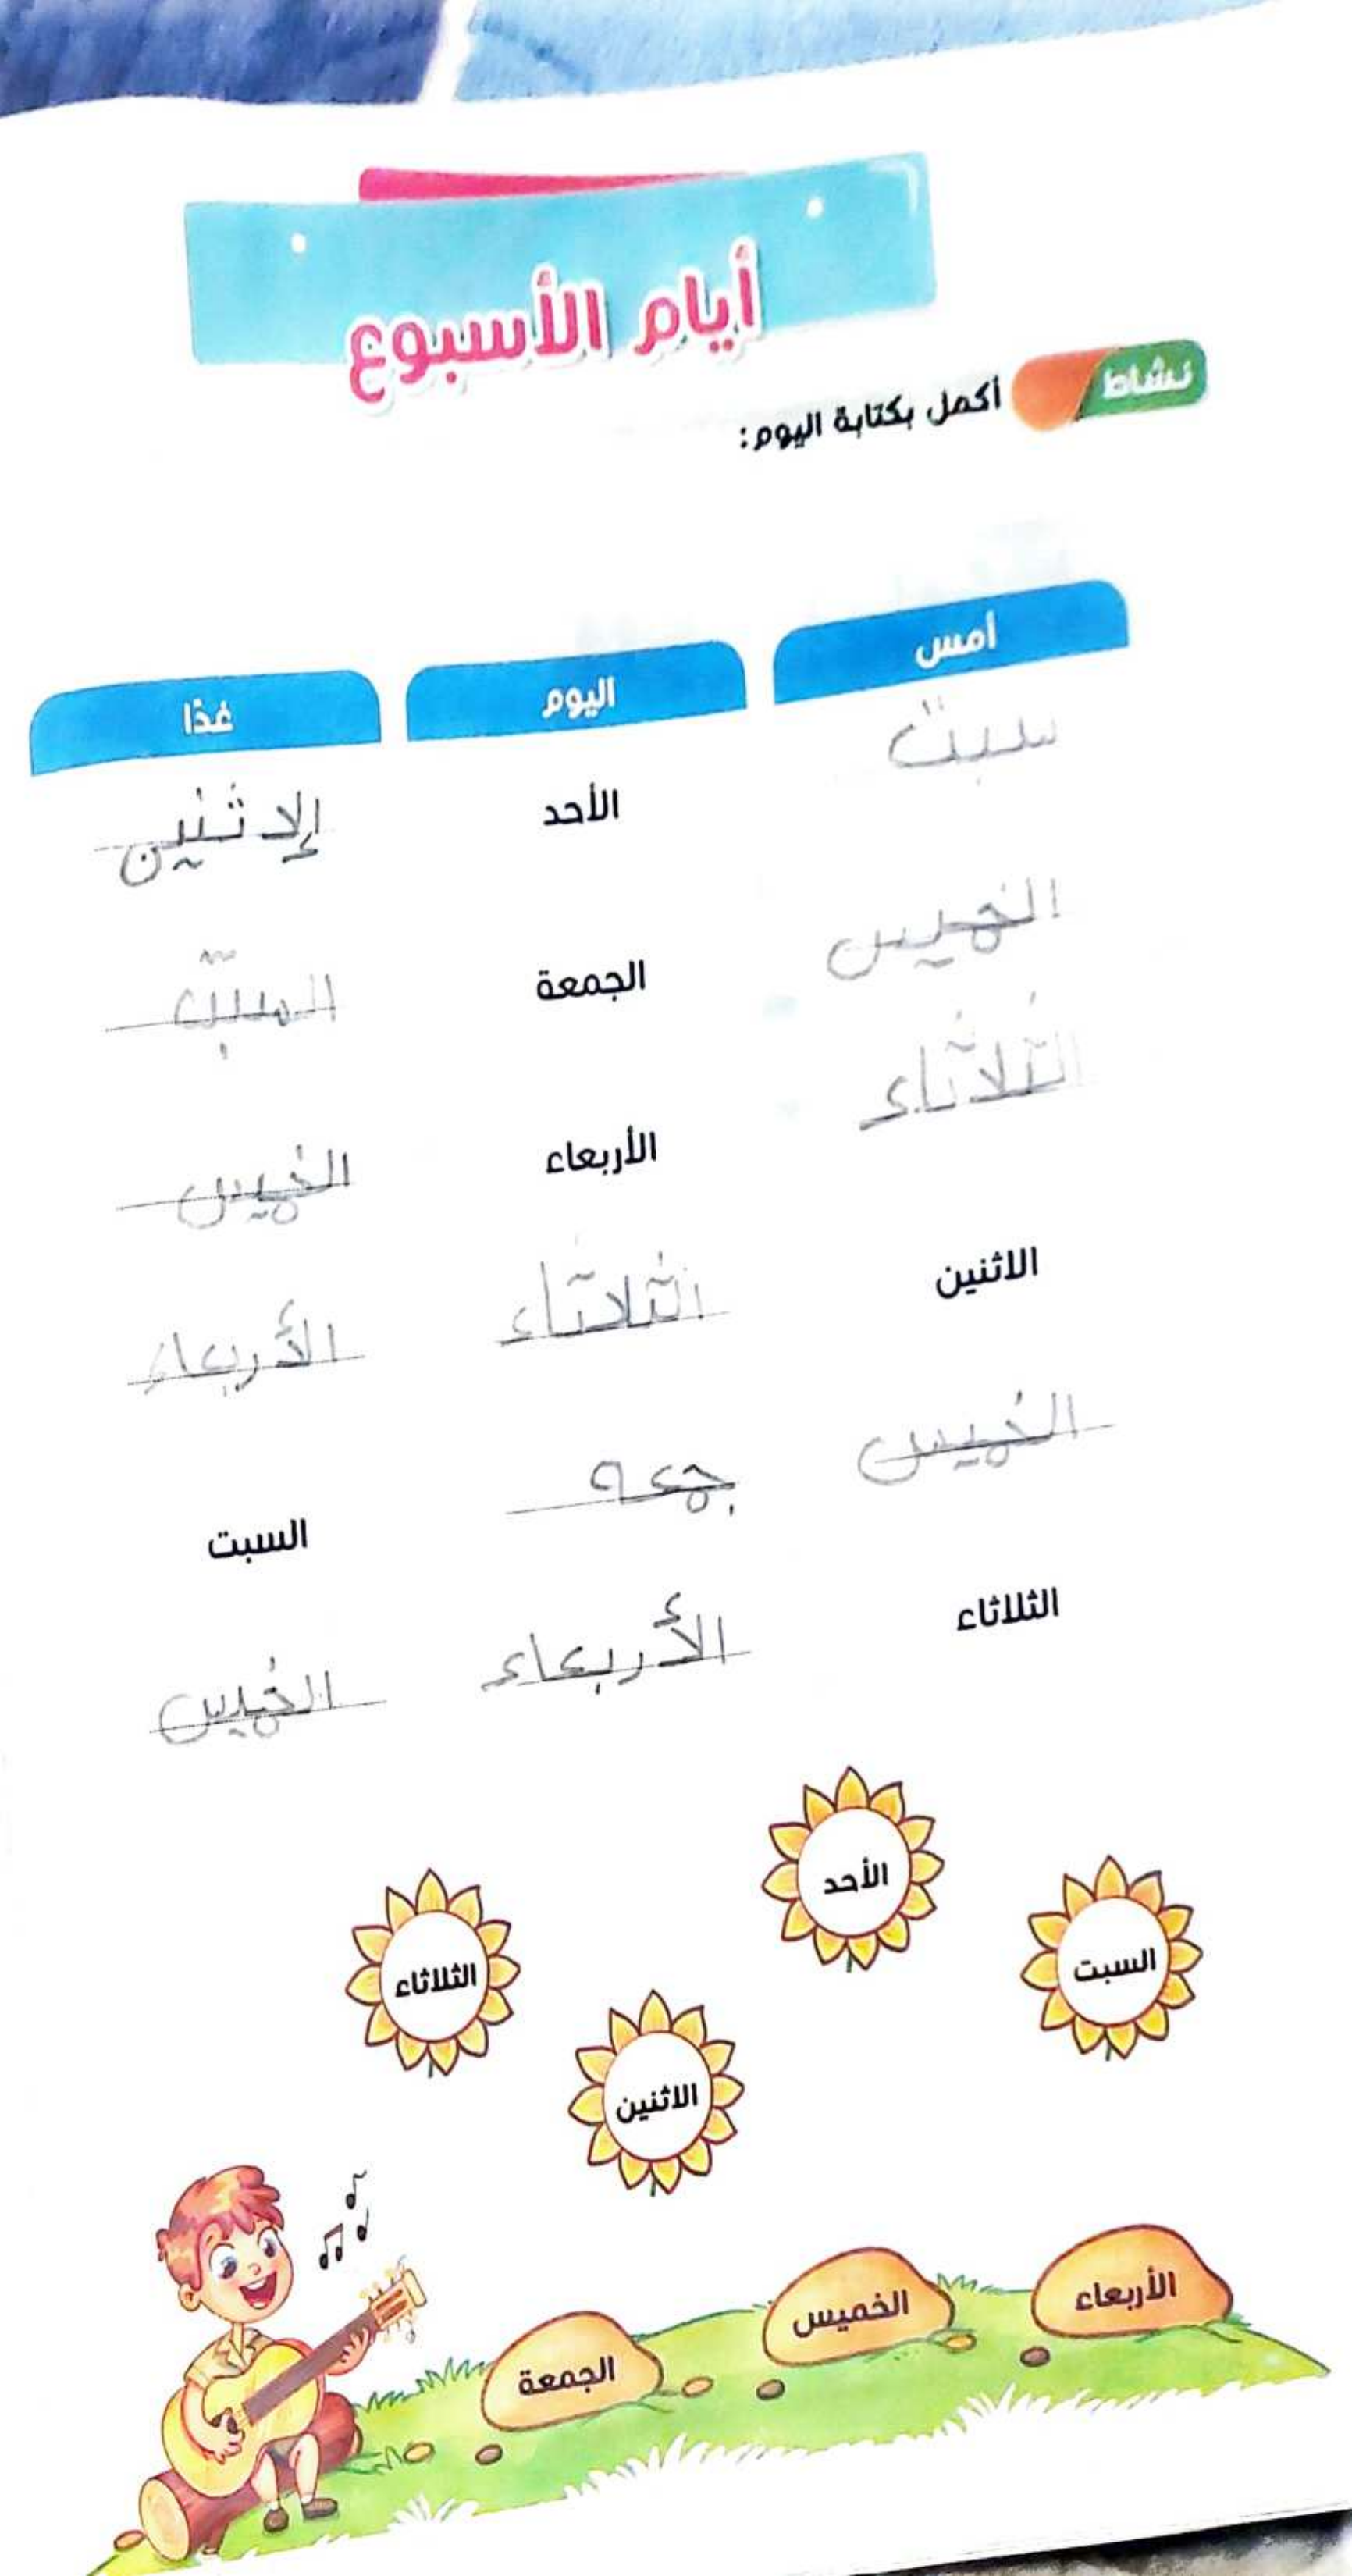 أيام الأسبوع
نشاط أكمل بكتابة اليوم:
أمس اليوم غدًا
سبت الأحد إلاثنين
الخميس الجمعة السبت
الثلاثاء الأربعاء الخميس
الاثنين الثلاثاء الأربعاء
الخميس جمعه السبت
الثلاثاء الأربعاء الخميس
الأحد
السبت
الثلاثاء
الاثنين
الأربعاء
الخميس
الجمعة